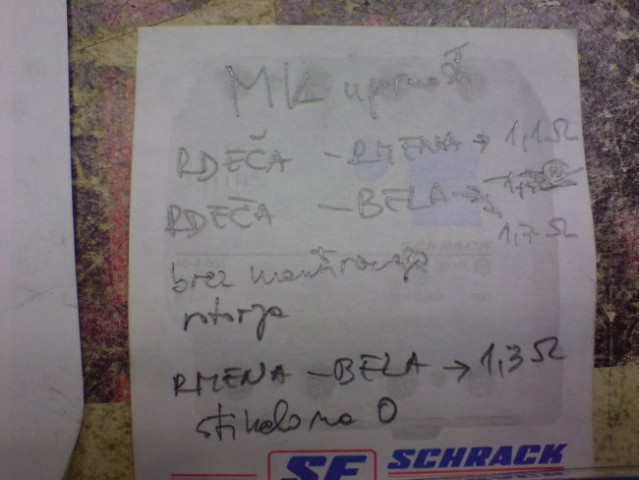 MK upornost
RDEČA - RMENA → 1,1 Ω
RDEČA - BELA →
1,7 Ω
brez
rotorja
RMENA - BELA → 1,3 Ω
stikalo na 0
SCHRACK
SE SCHRACK